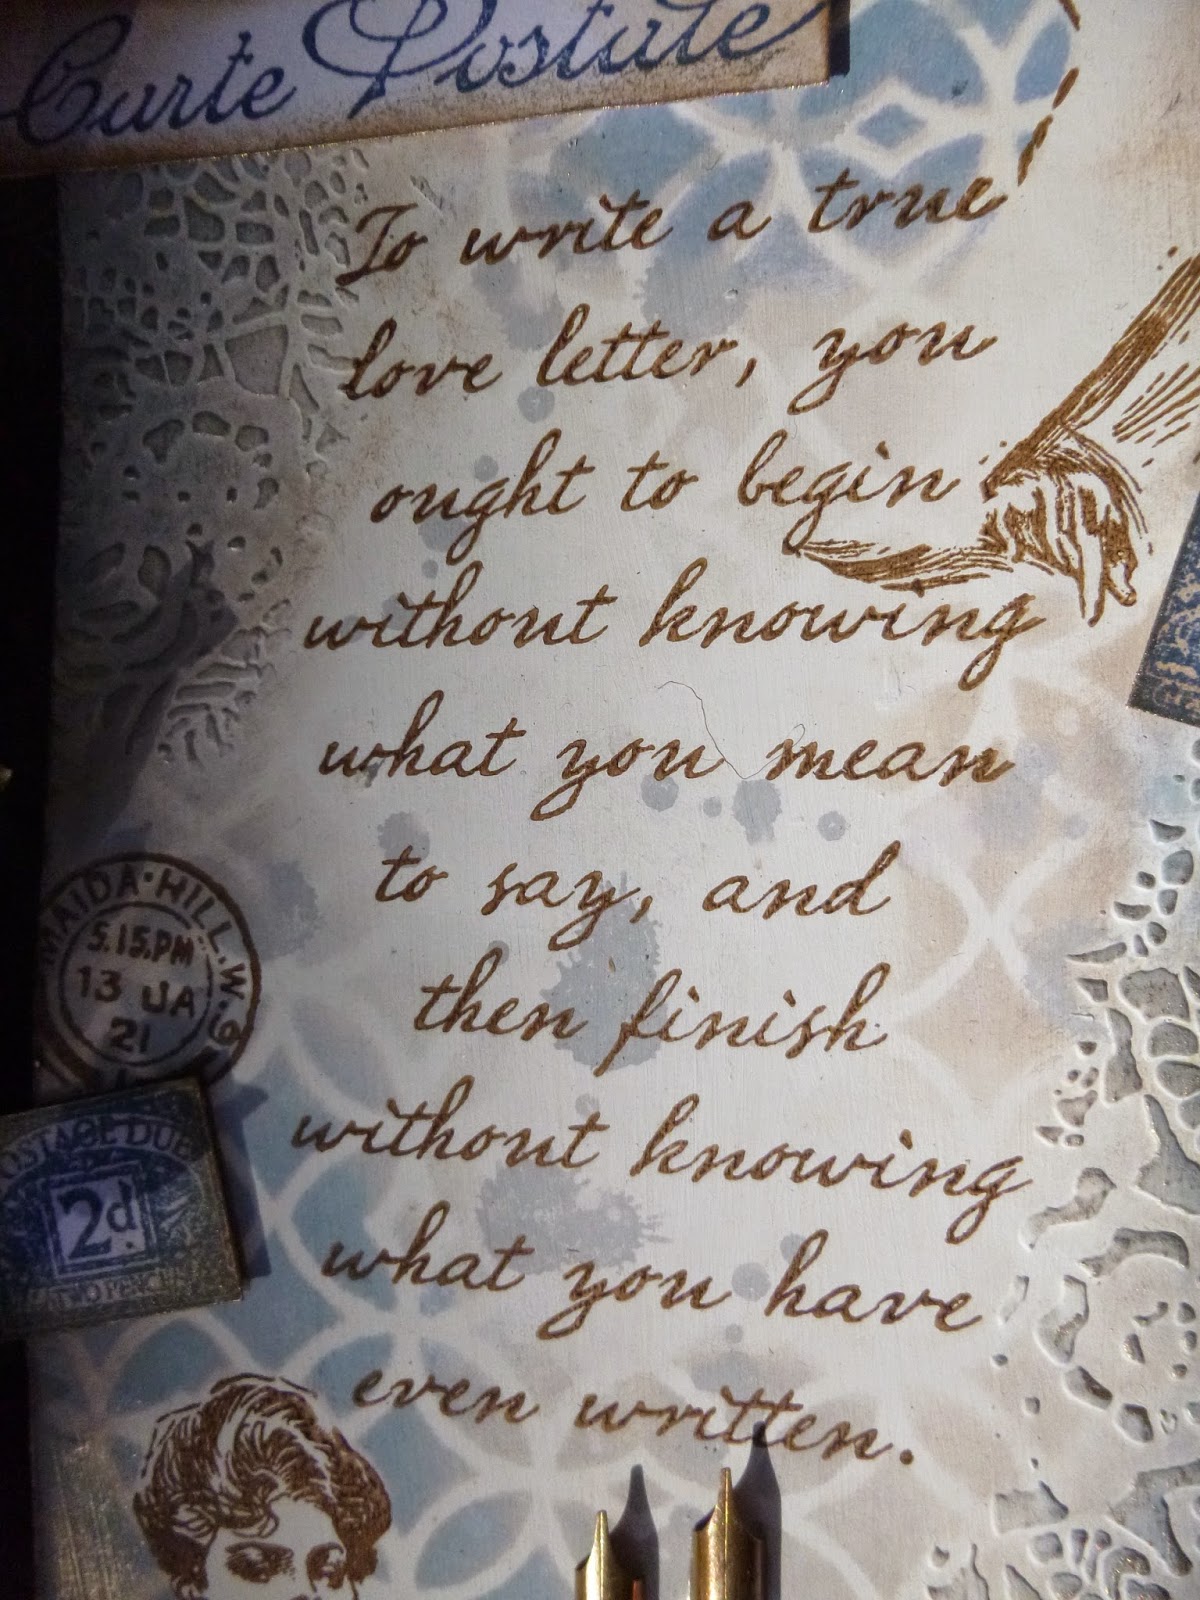 Carte Postale
To write a true
love letter, you
ought to begin
without knowing
what you mean
to say, and
then finish
without knowing
what you have
even written.
MAIDA·HILL.W.9
5.15.PM
13 JA
21
POSTAGE DUE
2d.
TWO PENCE